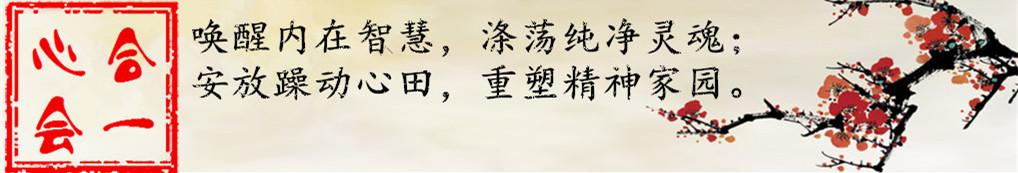 合一
心会
唤醒内在智慧，涤荡纯净灵魂；
安放躁动心田，重塑精神家园。